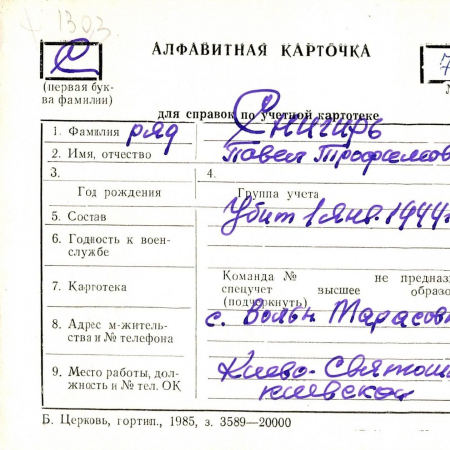 1303
С
АЛФАВИТНАЯ КАРТОЧКА
7
(первая бук-
ва фамилии)
для справок по учетной картотеке
1. Фамилия ряд Снигирь
2. Имя, отчество Павел Трофимов
3. 4.
Год рождения Группа учета
5. Состав Убит 1 янв. 1944
6. Годность к воен-
службе
Команда № не предназ
7. Картотека спецучет высшее образо
(подчеркнуть)
8. Адрес м-житель- с. Вольн Тарасов
ства и № телефона
9. Место работы, дол- Киево-Святош
жность и № тел. ОК киевской
Б. Церковь, гортип., 1985, з. 3589—20000